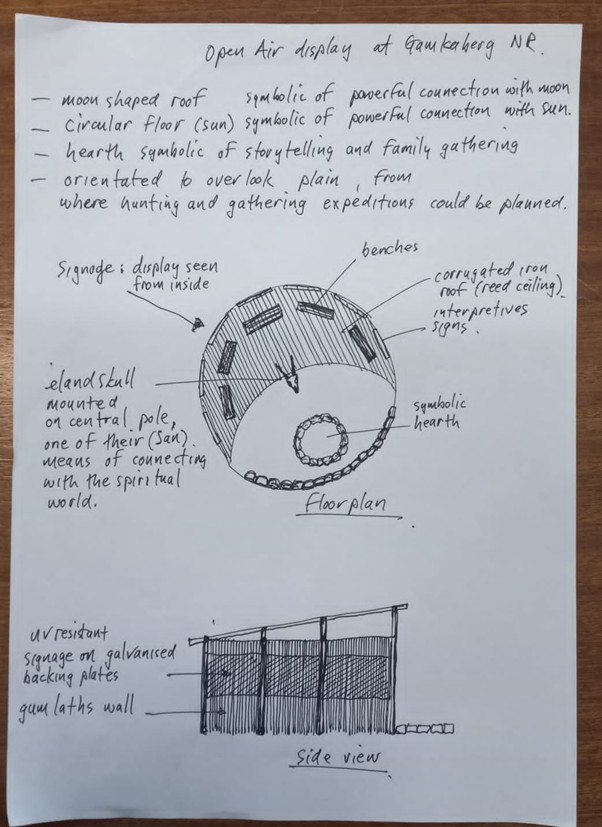 Open Air display at Gamkaberg NR.
— moon shaped roof symbolic of powerful connection with moon
— Circular floor (sun) symbolic of powerful connection with sun.
— hearth symbolic of storytelling and family gathering
— orientated to overlook plain, from
where hunting and gathering expeditions could be planned.
Signage: display seen
from inside
benches
corrugated iron
roof (reed ceiling)
interpretives
signs.
eland skull
mounted
on central pole,
one of their (San)
means of connecting
with the spiritual
world.
symbolic
hearth
Floor plan
uv resistant
signage on galvanised
backing plates
gum laths wall
Side view